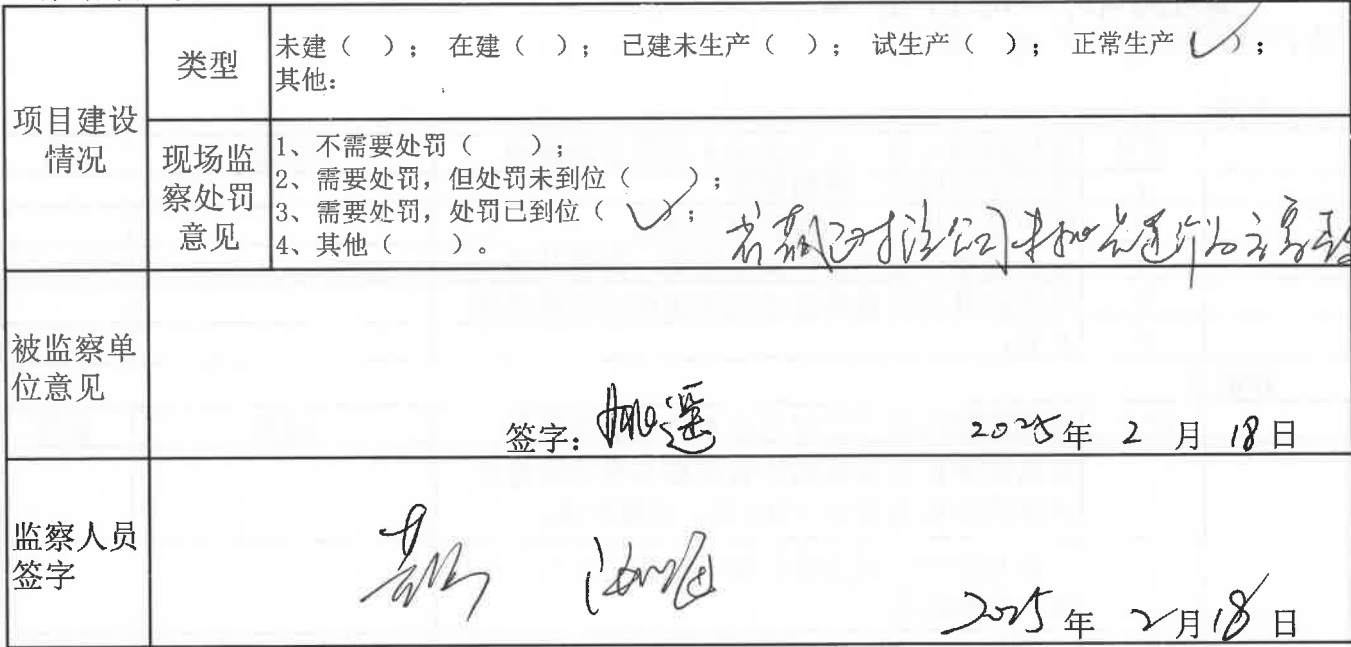 项目建设
情况
类型
未建（ ）； 在建（ ）； 已建未生产（ ）； 试生产（ ）； 正常生产（✓）；
其他：
现场监
察处罚
意见
1、不需要处罚（ ）；
2、需要处罚，但处罚未到位（ ）；
3、需要处罚，处罚已到位（✓）；
4、其他（ ）。
被监察单
位意见
签字： 2025年 2 月 18日
监察人员
签字
2025年 2月18日